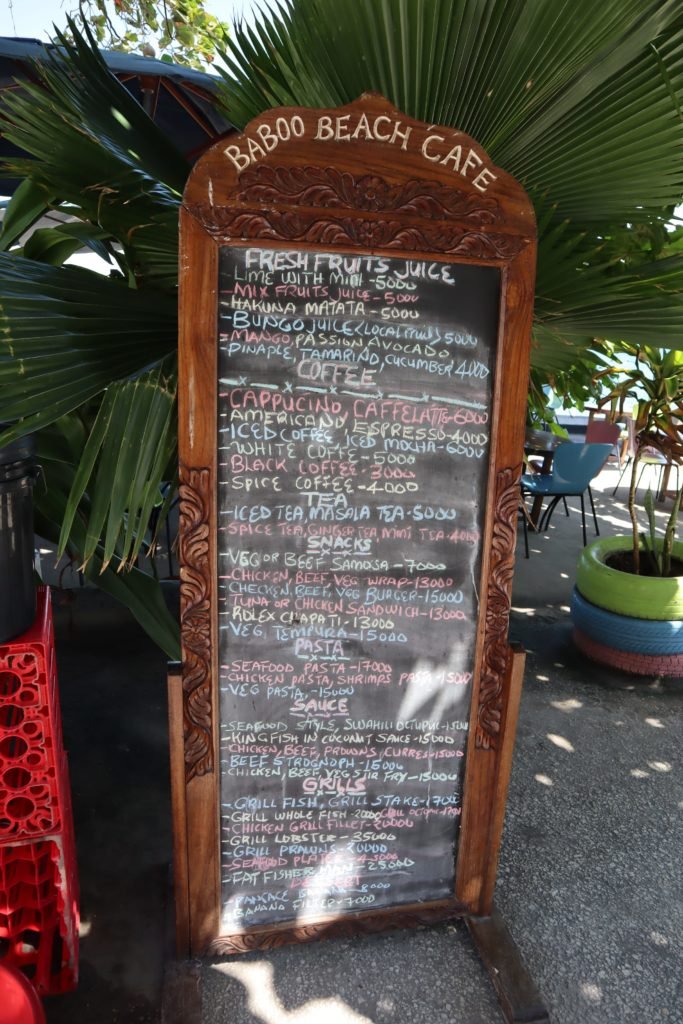 BABOO BEACH CAFE
FRESH FRUITS JUICE
- LIME WITH MINT - 5000
- MIX FRUITS JUICE - 5000
- HAKUNA MATATA - 5000
- BUNGO JUICE (LOCAL FRUITS) 5000
= MANGO, PASSION AVOCADO
- PINAPLE, TAMARIND, CUCUMBER 4000
COFFEE
- CAPPUCINO, CAFFELATTE - 6000
- AMERICANO, ESPRESSO - 4000
- ICED COFFEE, ICED MOCHA - 6000
- WHITE COFFE - 5000
- BLACK COFFEE - 3000
- SPICE COFFEE - 4000
TEA
- ICED TEA, MASALA TEA - 5000
- SPICE TEA, GINGER TEA MINT TEA - 4000
SNACKS
- VEG OR BEEF SAMOSA - 7000
- CHICKEN, BEEF, VEG WRAP - 13000
- CHECKEN, BEEF, VEG BURGER - 15000
- TUNA OR CHICKEN SANDWICH - 13000
- ROLEX CHAPATI - 13000
- VEG, TEMPURA - 15000
PASTA
- SEAFOOD PASTA - 17000
- CHICKEN PASTA, SHRIMPS PASTA - 15000
- VEG PASTA, - 15000
SAUCE
- SEAFOOD STYLE, SWAHILI OCTUPUC -
- KING FISH IN COCONUT SAUCE - 15000
- CHICKEN, BEEF, PROWNS, CURRES - 15000
- BEEF STROGNOPH - 15000
- CHICKEN, BEEF, VEG STIR FRY - 15000
GRILLS
- GRILL FISH, GRILL STAKE - 17000
- GRILL WHOLE FISH - 20000 GRILL OCTOPUC -
- CHICKEN GRILL FILLET - 20000
- GRILL LOBSTER - 35000
- GRILL PRAWNS - 20000
- SEAFOOD PLATER - 45000
- FAT FISHER MAN - 25000
DESSERT
- PANCACE BANANA 8000
- BANANA FRITTER - 7000